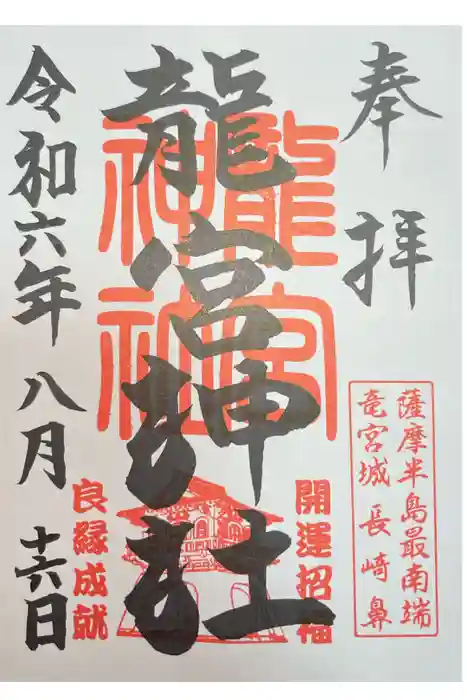 奉拝
薩摩半島最南端
竜宮城 長崎鼻
開運招福
龍宮神社
龍宮
神社
良縁成就
令和六年 八月 十六日